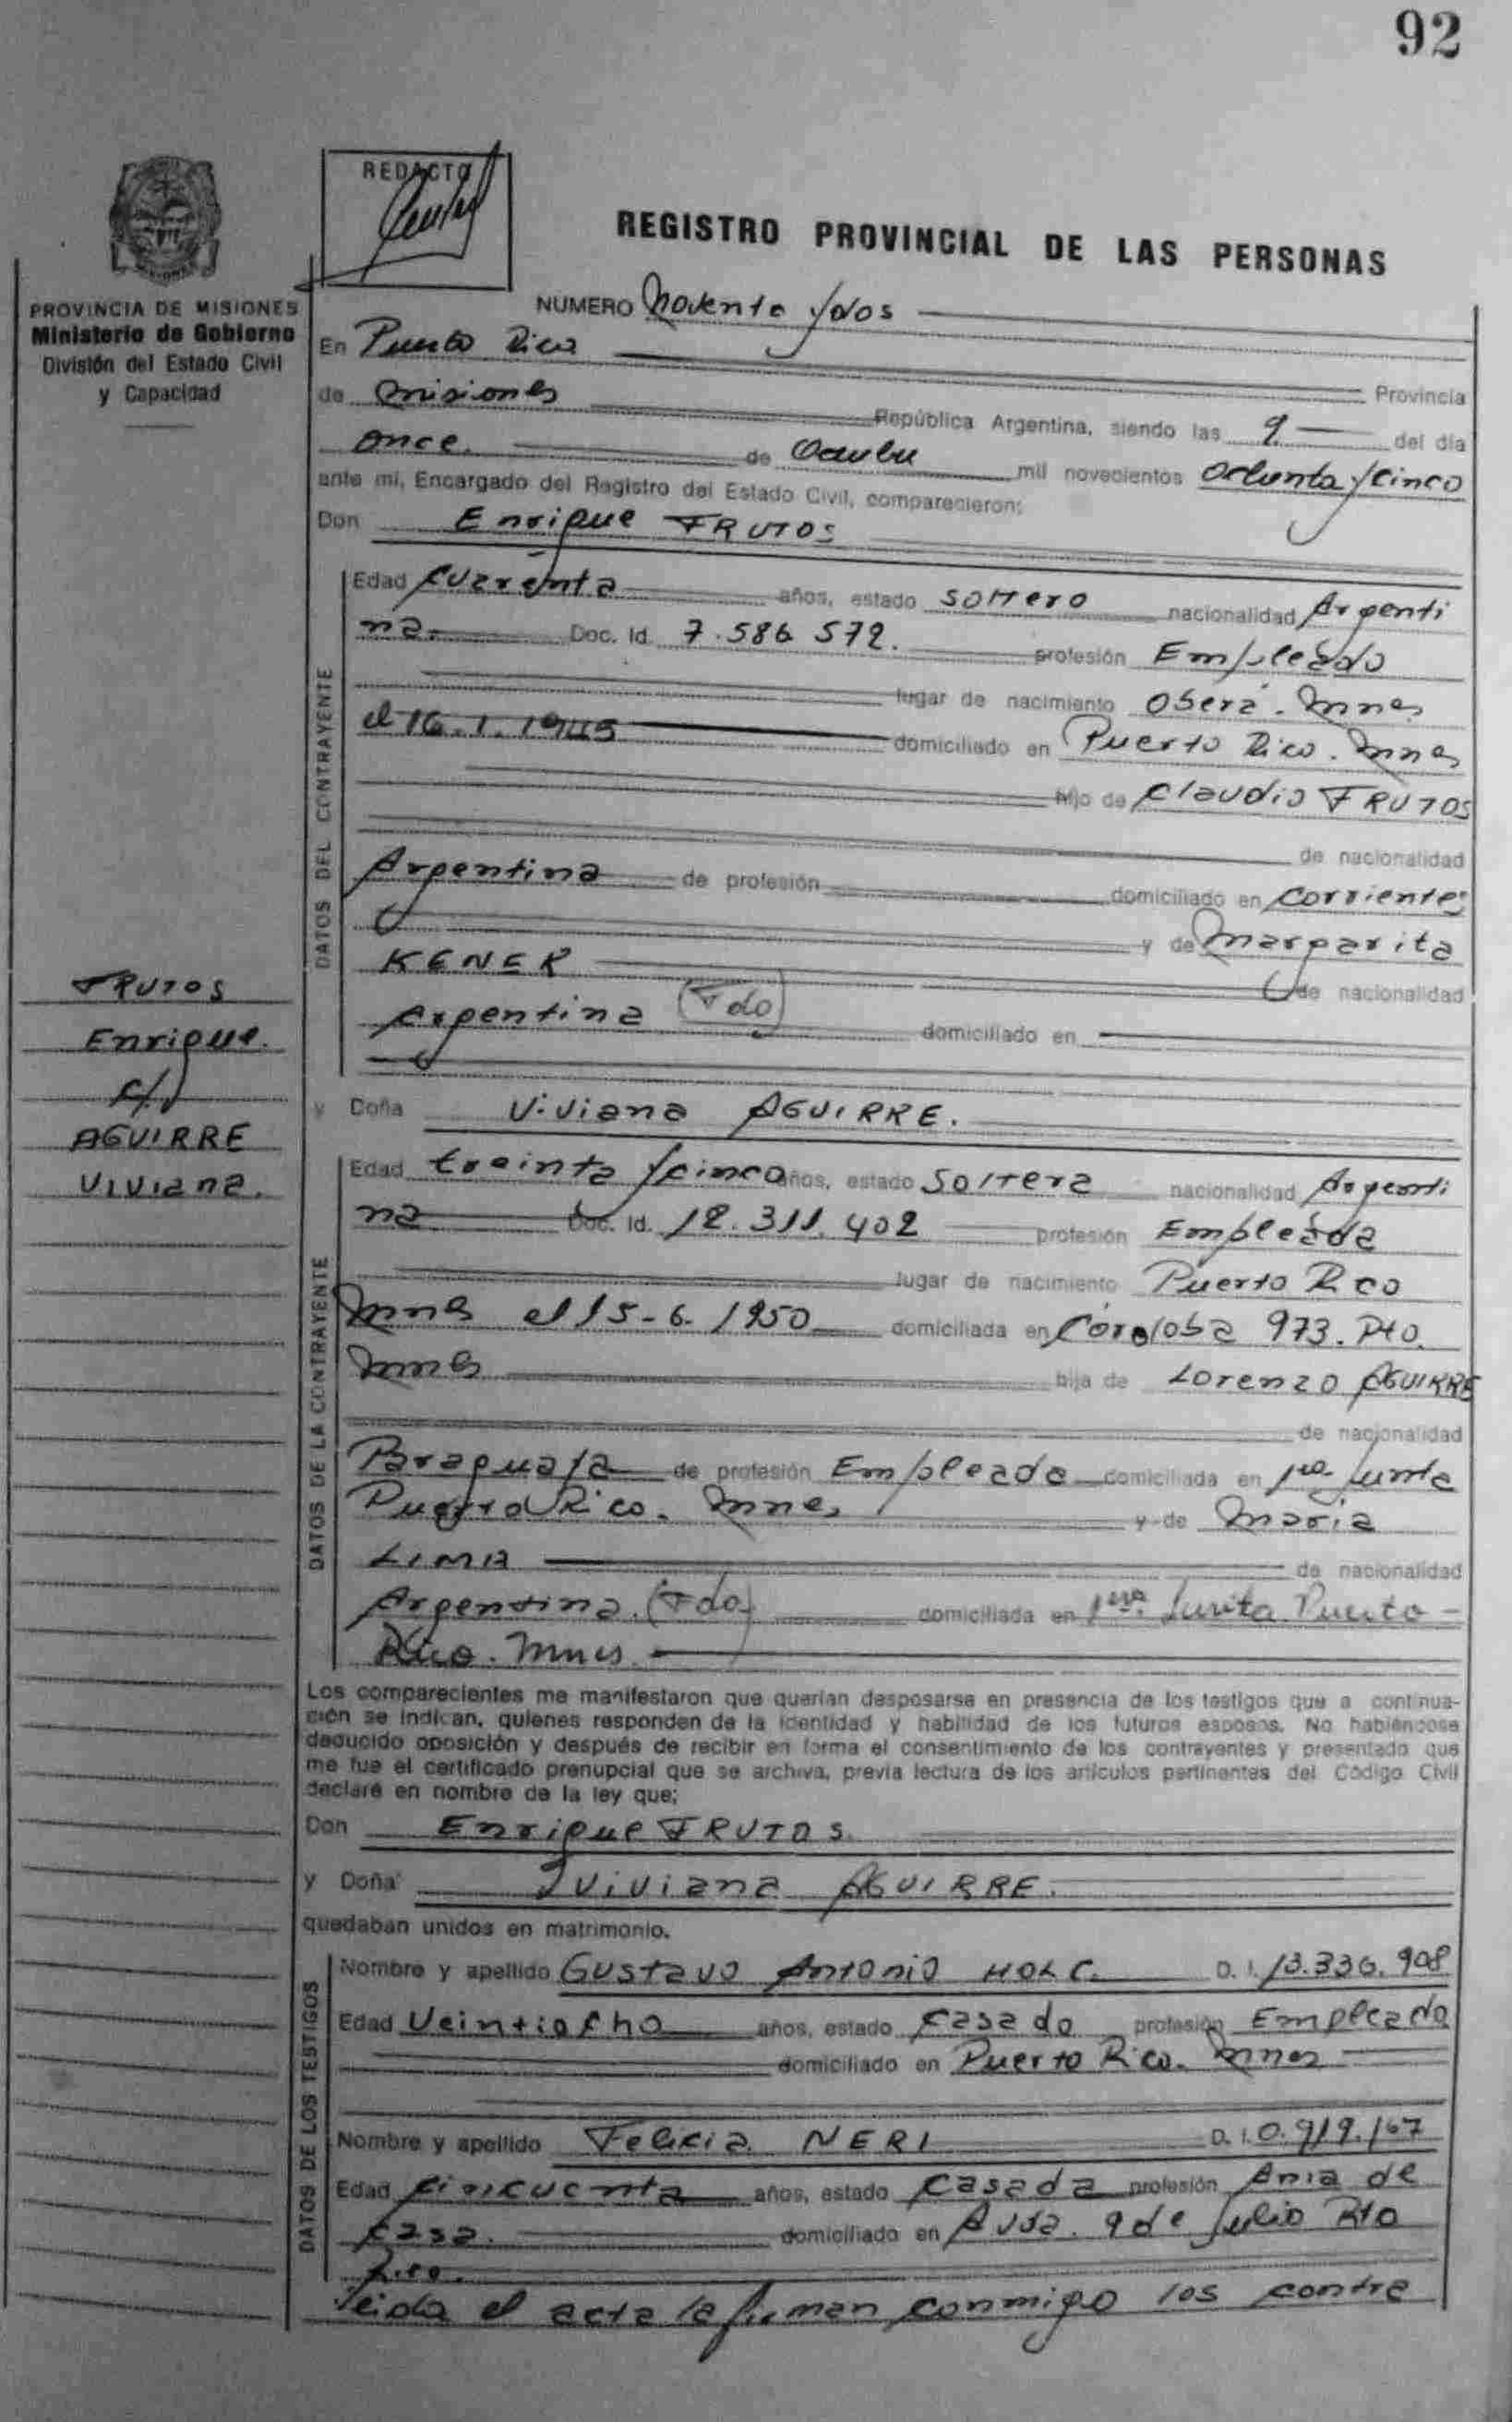 92
REDACTO
REGISTRO PROVINCIAL DE LAS PERSONAS
PROVINCIA DE MISIONES
Ministerio de Gobierno
División del Estado Civil
y Capacidad
NUMERO Noventa y dos
En Puerto Rico Provincia
de Misiones República Argentina, siendo las 9 del día
once de Octubre mil novecientos Ochenta y cinco
ante mí, Encargado del Registro del Estado Civil, comparecieron:
Don Enrique FRUTOS
DATOS DEL CONTRAYENTE
Edad cuarenta años, estado soltero nacionalidad Argenti
na. Doc. Id. 7.586.572. profesión Empleado
lugar de nacimiento Oberá. Mnes
el 16.1.1945 domiciliado en Puerto Rico. Mnes
hijo de Claudio FRUTOS
de nacionalidad
Argentina de profesión domiciliado en Corrientes
y de Margarita
KENER de nacionalidad
Argentina (Fdo) domiciliado en
FRUTOS
Enrique.
c/
AGUIRRE
Viviana.
y Doña Viviana AGUIRRE.
DATOS DE LA CONTRAYENTE
Edad treinta y cinco años, estado Soltera nacionalidad Argenti
na Doc. Id. 12.311.402 profesión Empleada
lugar de nacimiento Puerto Rco
Mnes el 15-6-1950 domiciliada en Córdoba 973. Pto.
Mnes hija de Lorenzo AGUIRRE
de nacionalidad
Paraguaya de profesión Empleado domiciliada en 1ra. Junta
Puerto Rico. Mnes y de Maria
LIMA de nacionalidad
Argentina. (Fdo) domiciliada en 1era. Junta Puerto-
Rico. Mnes
Los comparecientes me manifestaron que querían desposarse en presencia de los testigos que a continua-
ción se indican, quienes responden de la identidad y habilidad de los futuros esposos. No habiéndose
deducido oposición y después de recibir en forma el consentimiento de los contrayentes y presentado que
me fue el certificado prenupcial que se archiva, previa lectura de los artículos pertinentes del Código Civil
declaré en nombre de la ley que;
Don Enrique FRUTOS.
y Doña Viviana AGUIRRE.
quedaban unidos en matrimonio.
DATOS DE LOS TESTIGOS
Nombre y apellido Gustavo Antonio HOLC. D. I. 13.336.908
Edad Veintiocho años, estado casado profesión Empleado
domiciliado en Puerto Rico. Mnes
Nombre y apellido Felicia NERI D. I. 0.919.167
Edad cincuenta años, estado casada profesión Ama de
casa. domiciliado en Avda. 9 de Julio Pto
Rco.
leida el acta la firman conmigo los contra